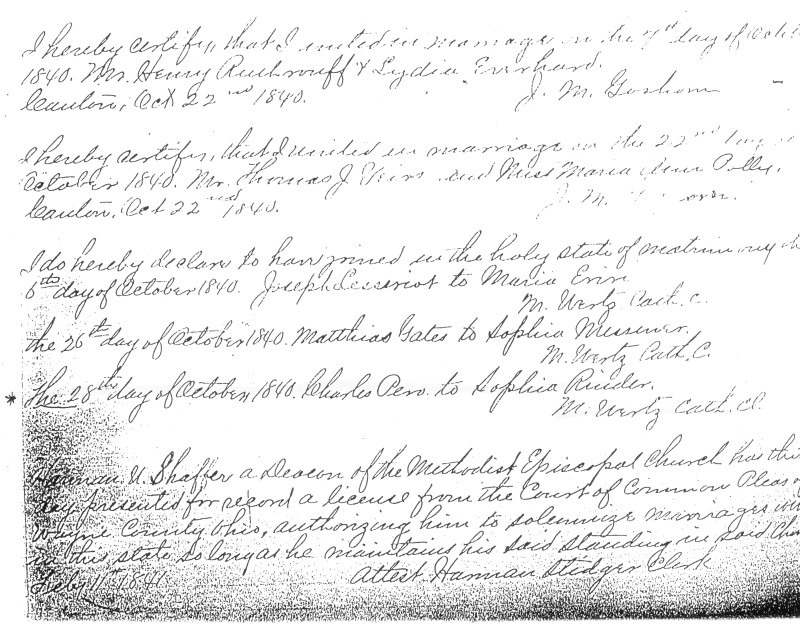 I hereby certify, that I united in marriage on the 7th day of
1840. Mr. Henry & Lydia Everhard.
J. M. Goshorn
Canton, Oct 22nd 1840.
I hereby certify, that I united in marriage on the 22nd day
October 1840. Mr. Thomas J. and Miss Maria Ann Polly.
J. M.
Canton, Oct 22nd 1840.
I do hereby declare to have joined in the holy state of matrimony
6th day of October 1840. Joseph to Maria
M. Wertz Cath. C.
the 26th day of October 1840. Matthias Gates to Sophia
M. Wertz Cath. C.
* The 28th day of October, 1840. Charles to Sophia
M. Wertz Cath. Cl.
Harman U. Shaffer a Deacon of the Methodist Episcopal Church has this
day presented for record a license from the Court of Common Pleas of
Wayne County Ohio, authorizing him to solemnize marriages
in this state so long as he maintains his said standing in said
Feby 11th 1841. Attest Harman Stidger Clerk